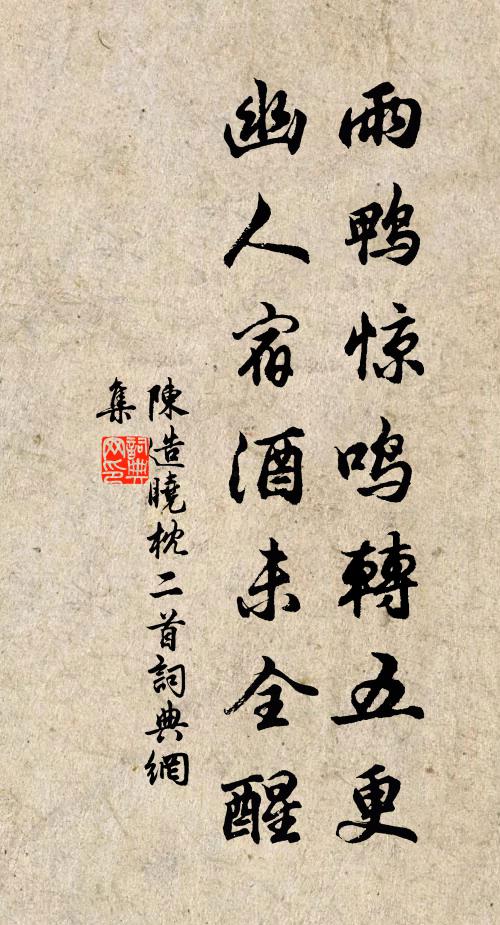 雨鸭惊鸣轉五更
幽人宿酒未全醒
陳造曉枕二首詞典網
集
詞典网印